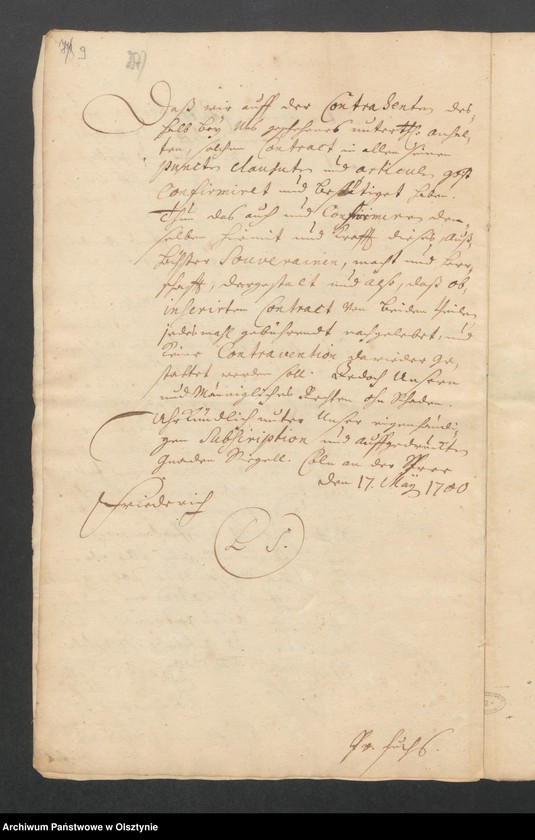 9
Daß wir auff der Contrahenten des,
halb bey Uns geschehenes unterth: anhal,
ten, solchen Contract in allen seinen
puncten clausulen und articulen gdst
Confirmiret und bestätiget haben.
Thun das auch und Confirmiren den,
selben hiemit und Krafft dieses, Auß
höchster Souverainen, macht und Herr,
schafft, dergestalt und also, daß ob,
inserirten Contract von beiden theilen
jedesmahl gebührendt nachgelebet, und
keine Contravention dawieder ge,
stattet werden soll. Jedoch Unsern
und Männigliches Rechten ohn Schaden.
Uhrkundlich unter Unser eigenhändi,
gen Subscription und auffgedruckten
Gnaden Siegell. Cöln an der Spree
den 17. May 1700
Friederich
L S.
Pr. Fuchs.
Archiwum Państwowe w Olsztynie